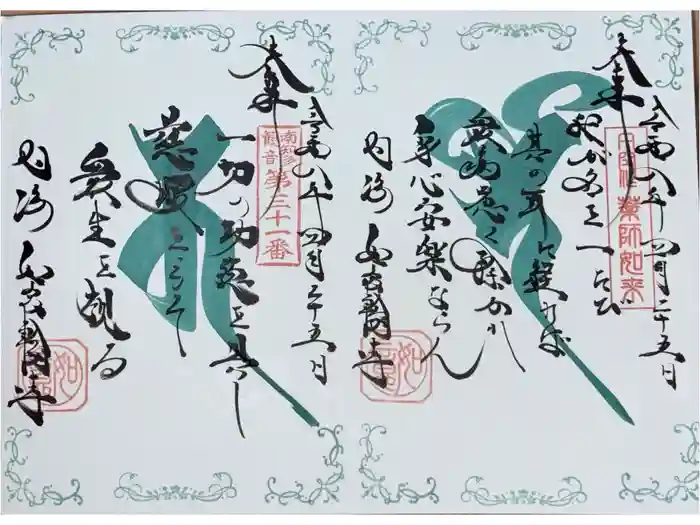 奉拝
令和八年四月二十五日
薬師如来
我が名を一たび
其の耳に経れば
衆病悉く除かれ
身心安楽ならん
内海 如意輪寺
奉拝
令和八年四月二十五日
南知多
観音
第三十一番
一切の功徳を具し
慈眼をもって
衆生を視る
内海 如意輪寺